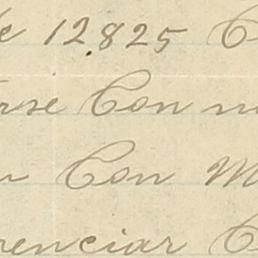 12.825 C
rse Con n
n Con M
renciar C